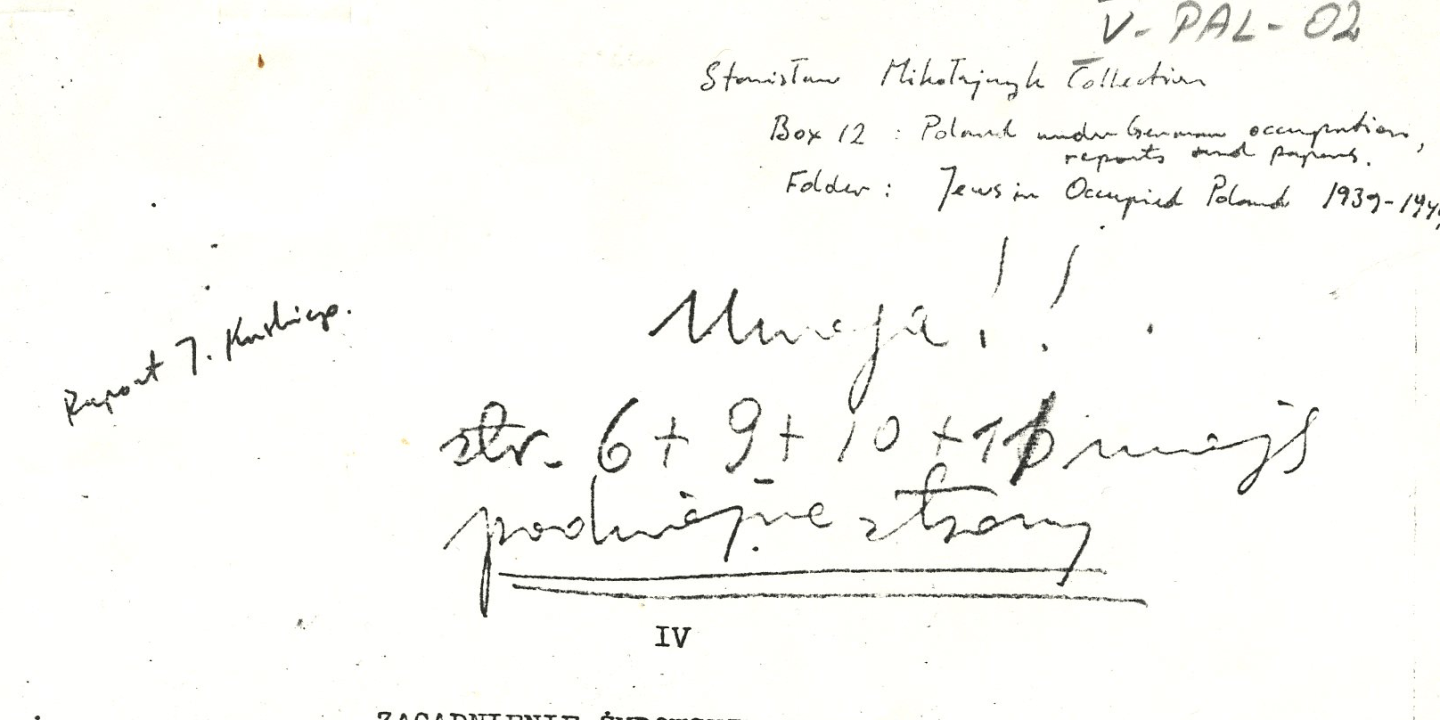 V-PAL-02
Stanisław Mikołajczyk Collection
Box 12 : Poland under German occupation,
reports and papers.
Folder : Jews in Occupied Poland 1939-194
Raport J.
Uwaga!!
str. 6 + 9 + 10 + 16 mają
podwójne strony
IV
ZAGADNIENIE ŻYDOWSKIE